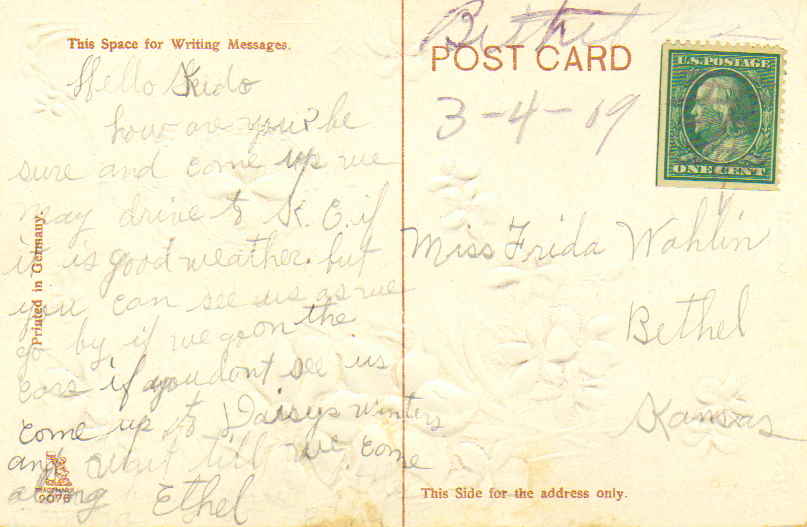 This Space for Writing Messages.
Hello Kido
how are you? be
sure and come up we
may drive to K. C. if
it is good weather. but
you can see us as we
go by if we go on the
cars if you dont see us
come up to Daisys Winters
and wait till we come
along Ethel
Printed in Germany.
9076
Bethel
POST CARD
3-4-09
U.S. POSTAGE
ONE CENT
Miss Frida Wahlin
Bethel
Kansas
This Side for the address only.